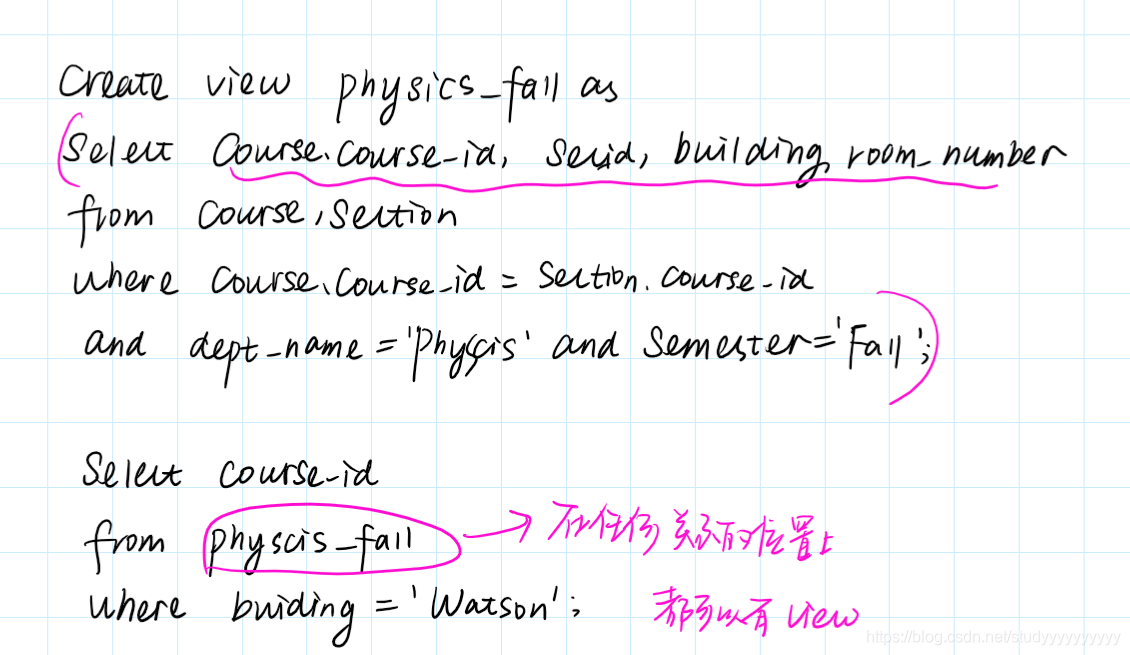 Create view physics_fall as
Select Course.course_id, secid, building, room_number
from course, section
where Course.Course_id = section.course_id
and dept_name = 'Physcis' and Semester='Fall';
Select course_id
from physcis_fall → 在任何关系的位置上
where buiding = 'Watson'; 都可以有 view
https://blog.csdn.net/studyyyyyyyyyy